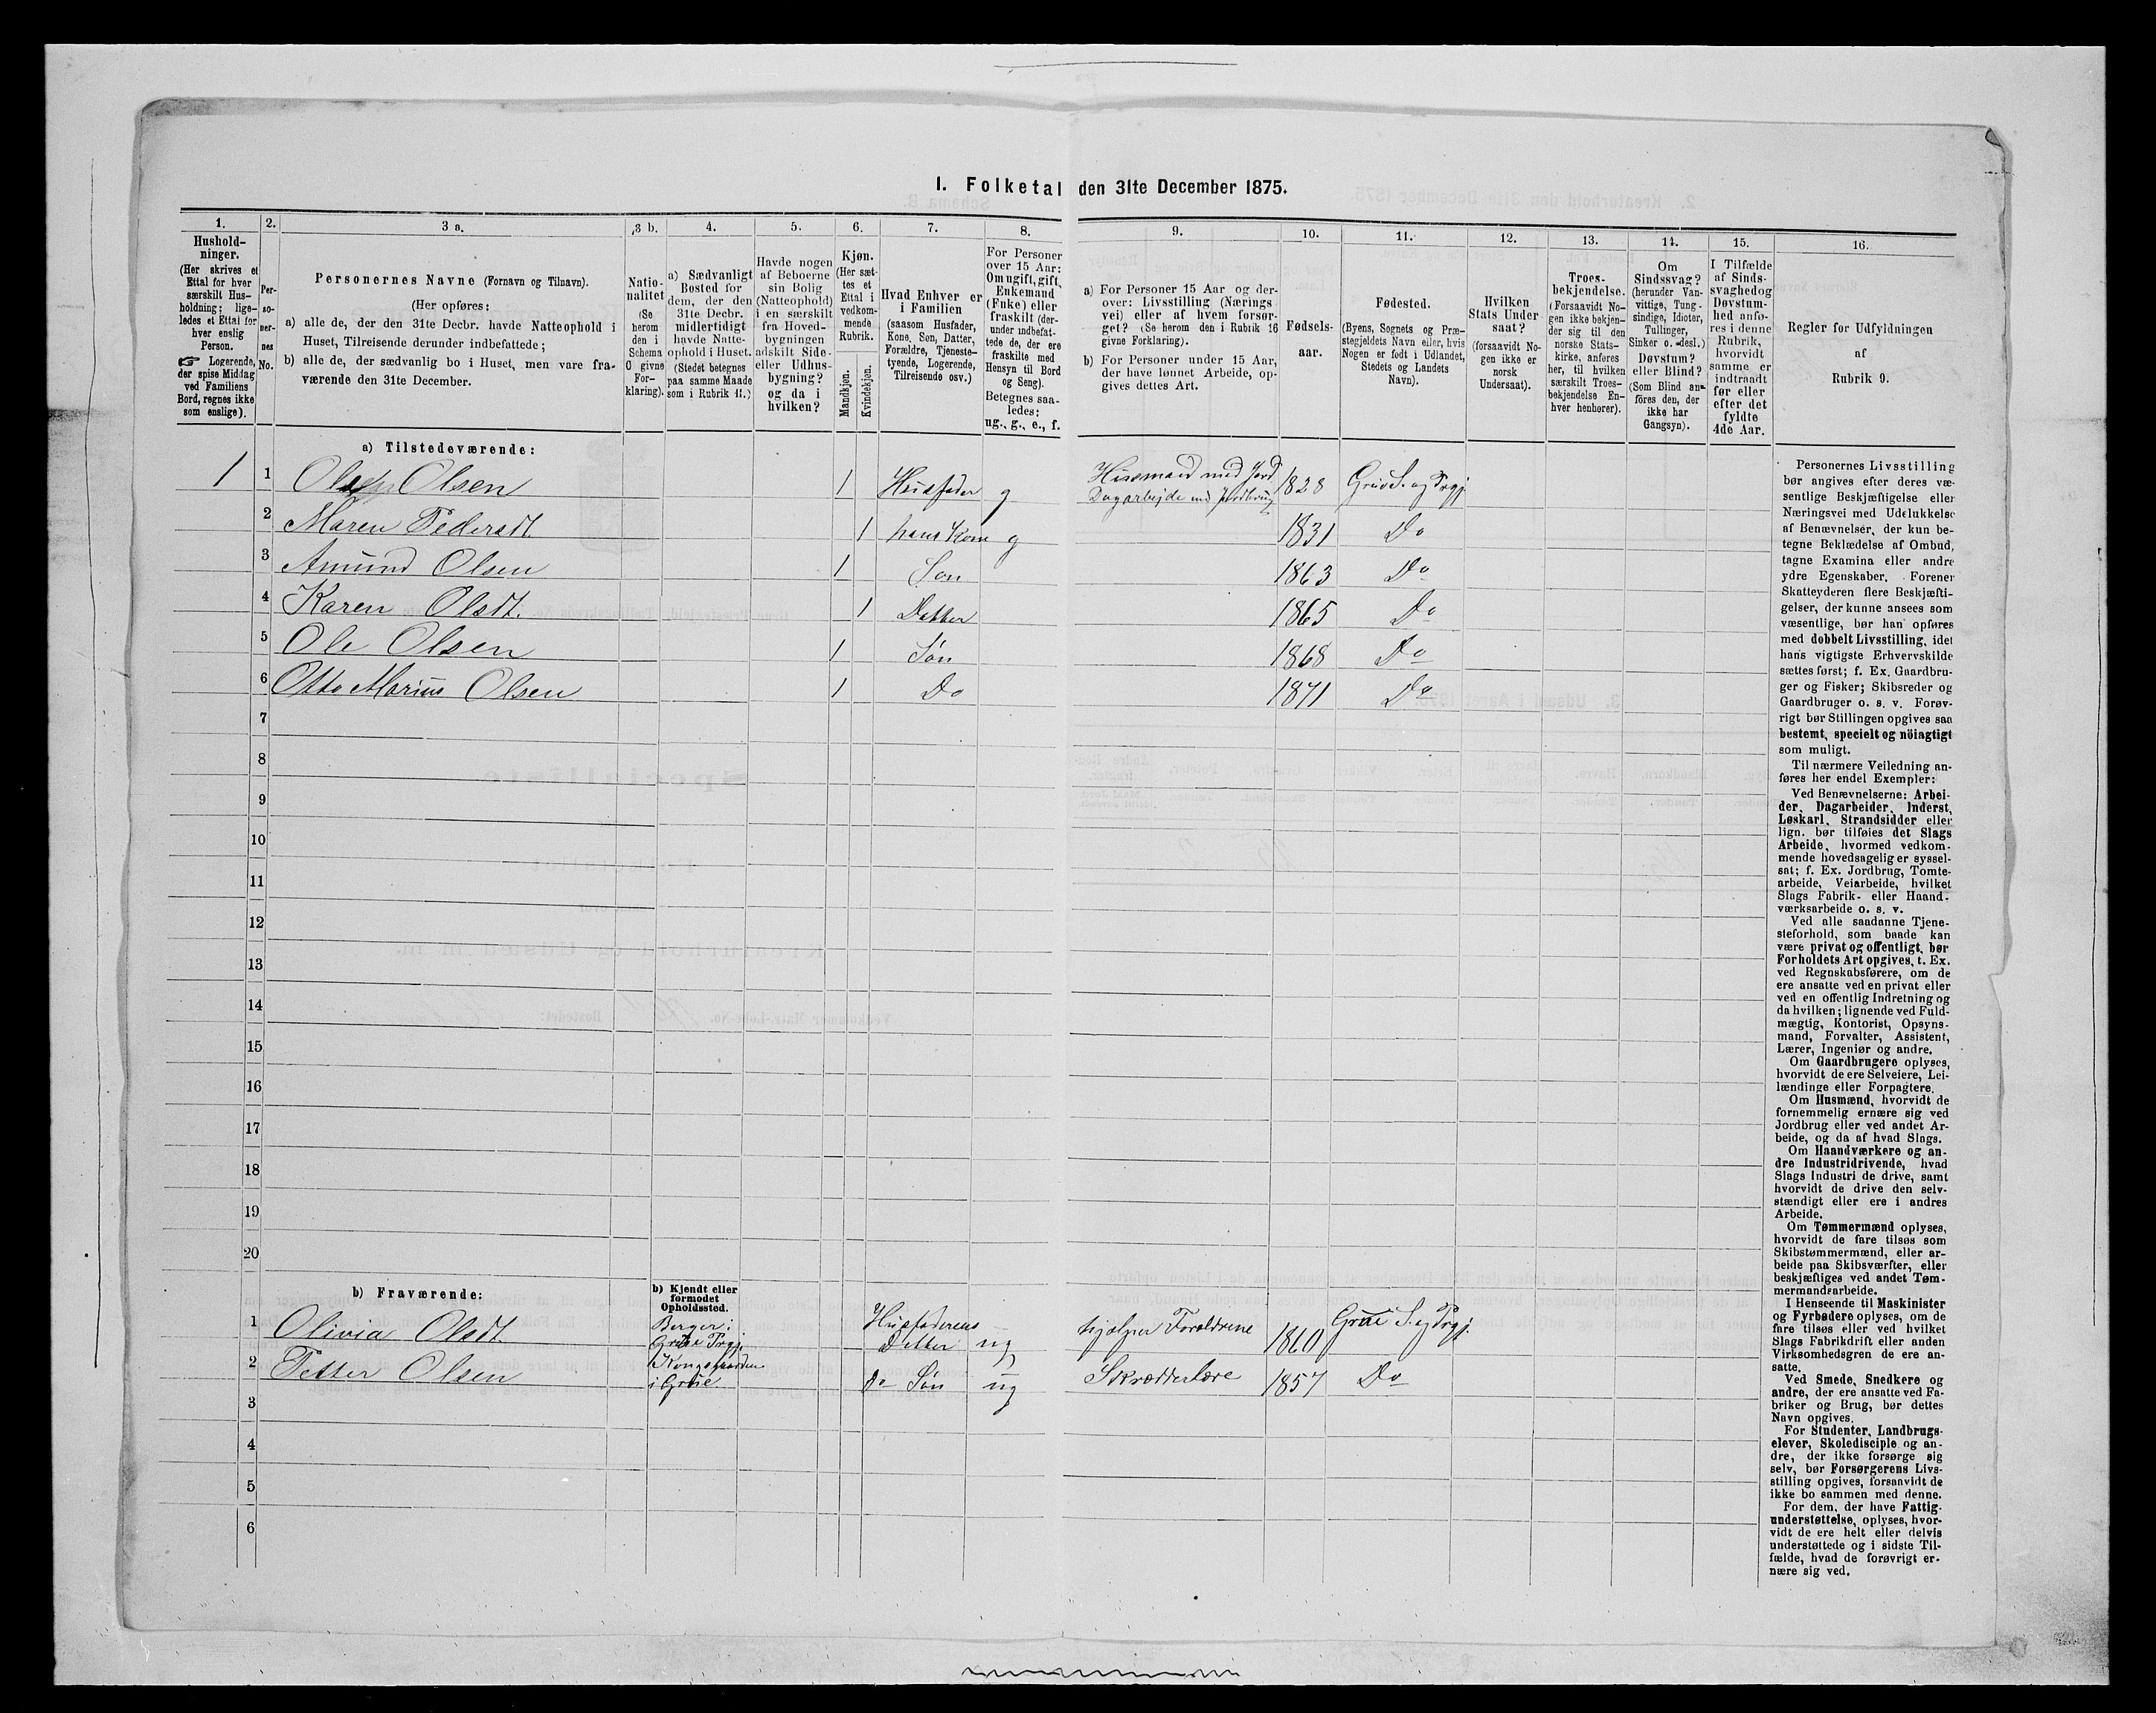 I. Folketal den 31te December 1875.
1. 2. 3 a. 3 b. 4. 5. 6. 7. 8. 9. 10. 11. 12. 13. 14. 15. 16.
Hushold-
ninger.
(Her skrives et
Ettal for hver
særskilt Hus-
holdning; lige-
ledes et Ettal for
hver enslig
Person.
☞ Logerende,
der spise Middag
ved Familiens
Bord, regnes ikke
som enslige).
Per-
so-
ner-
nes
No.
Personernes Navne (Fornavn og Tilnavn).
(Her opføres:
a) alle de, der den 31te Decbr. havde Natteophold i
Huset, Tilreisende derunder indbefattede;
b) alle de, der sædvanlig bo i Huset, men vare fra-
værende den 31te December.
Natio-
nalitet
(Se
herom
den i
Schema
C givne
For-
klaring).
a) Sædvanligt
Bosted for
dem, der den
31te Decbr.
midlertidigt
havde Natte-
ophold i Huset.
(Stedet betegnes
paa samme Maade
som i Rubrik 11.)
Havde nogen
af Beboerne
sin Bolig
(Natteophold)
i en særskilt
fra Hoved-
bygningen
adskilt Side-
eller Udhus-
bygning?
og da i
hvilken?
Kjøn.
(Her sæt-
tes et
Ettal i
vedkom-
mende
Rubrik.
Mandkjøn.
Kvindekjøn.
Hvad Enhver er
i Familien
(saasom Husfader,
Kone, Søn, Datter,
Forældre, Tjeneste-
tyende, Logerende,
Tilreisende osv.)
For Personer
over 15 Aar:
Om ugift, gift,
Enkemand
(Enke) eller
fraskilt (der-
under indbefat-
tede de, der ere
fraskilte med
Hensyn til Bord
og Seng).
Betegnes saa-
ledes:
ug., g., e., f.
a) For Personer 15 Aar og der-
over: Livsstilling (Nærings
vei) eller af hvem forsør-
get? (Se herom den i Rubrik 16
givne Forklaring).
b) For Personer under 15 Aar,
der have lønnet Arbeide, op-
gives dettes Art.
Fødsels-
aar.
Fødested.
(Byens, Sognets og Præ-
stegjeldets Navn eller, hvis
Nogen er født i Udlandet,
Stedets og Landets
Navn).
Hvilken
Stats Under
saat?
(forsaavidt No-
gen ikke er
norsk
Undersaat).
Troes-
bekjendelse.
(Forsaavidt No-
gen ikke bekjen-
der sig til den
norske Stats-
kirke, anføres
her, til hvilken
særskilt Troes-
bekjendelse En-
hver henhører).
Om
Sindssvag?
(herunder Van-
vittige, Tung-
sindige, Idioter,
Tullinger,
Sinker o. desl.)
Døvstum?
eller Blind?
(Som Blind an-
føres den, der
ikke har
Gangsyn).
I Tilfælde
af Sinds-
svaghed og
Døvstum-
hed anfø-
res i denne
Rubrik,
hvorvidt
samme er
indtraadt
før eller
efter det
fyldte
4de Aar.
Regler for Udfyldningen
af
Rubrik 9.
a) Tilstedeværende:
1 1 Olsen 1 Husfader g Husmand med Jord Dagarbejde ved Jordbrug 1828 Grue S. og Prgj.
2 Maren Pedersdt. 1 hans Kone g 1831 Do
3 Amund Olsen 1 Søn 1863 Do
4 Karen Olsdt. 1 Datter 1865 Do
5 Ole Olsen 1 Søn 1868 Do
6 Otto Marius Olsen 1 Do 1871 Do
7
8
9
10
11
12
13
14
15
16
17
18
19
20
b) Fraværende:
b) Kjendt eller
formodet
Opholdssted.
1 Olivia Olsdt. Berger i Grue Prgj. Husfaderens Datter ug hjælper Forældrene 1860 Grue S. og Prgj.
2 Petter Olsen Kongsgaarden i Grue. do Søn ug Skrædderlære 1857 Do
3
4
5
6
Personernes Livsstilling
bør angives efter deres væ-
sentlige Beskjæftigelse eller
Næringsvei med Udelukkelse
af Benævnelser, der kun be-
tegne Beklædelse af Ombud,
tagne Examina eller andre
ydre Egenskaber. Forener
Skatteyderen flere Beskjæfti-
gelser, der kunne ansees som
væsentlige, bør han opføres
med dobbelt Livsstilling, idet
hans vigtigste Erhvervskilde
sættes først; f. Ex. Gaardbru-
ger og Fisker; Skibsreder og
Gaardbruger o. s. v. Forøv-
rigt bør Stillingen opgives saa
bestemt, specielt og nöiagtigt
som muligt.
Til nærmere Veiledning an-
føres her endel Exempler:
Ved Benævnelserne: Arbei-
der, Dagarbeider, Inderst,
Løskarl, Strandsidder eller
lign. bør tilføies det Slags
Arbeide, hvormed vedkom-
mende hovedsagelig er syssel-
sat; f. Ex. Jordbrug, Tomte-
arbeide, Veiarbeide, hvilket
Slags Fabrik- eller Haand-
værksarbeide o. s. v.
Ved alle saadanne Tjene-
steforhold, som baade kan
være privat og offentligt, bør
Forholdets Art opgives, t. Ex.
ved Regnskabsførere, om de
ere ansatte ved en privat eller
ved en offentlig Indretning og
da hvilken; lignende ved Fuld-
mægtig, Kontorist, Opsyns-
mand, Forvalter, Assistent,
Lærer, Ingeniør og andre.
Om Gaardbrugere oplyses,
hvorvidt de ere Selveiere, Lei-
lændinge eller Forpagtere.
Om Husmænd, hvorvidt de
fornemmelig ernære sig ved
Jordbrug eller ved andet Ar-
beide, og da af hvad Slags.
Om Haandværkere og an-
dre Industridrivende, hvad
Slags Industri de drive, samt
hvorvidt de drive den selv-
stændigt eller ere i andres
Arbeide.
Om Tømmermænd oplyses,
hvorvidt de fare tilsøs som
Skibstømmermænd, eller ar-
beide paa Skibsværfter, eller
beskjæftiges ved andet Tøm-
mermandsarbeide.
I Henseende til Maskinister
og Fyrbødere oplyses, om de
fare tilsøs eller ved hvilket
Slags Fabrikdrift eller anden
Virksomhedsgren de ere an-
satte.
Ved Smede, Snedkere og
andre, der ere ansatte ved Fa-
briker og Brug, bør dettes
Navn opgives.
For Studenter, Landbrugs-
elever, Skoledisciple og an-
dre, der ikke forsørge sig
selv, bør Forsørgerens Livs-
stilling opgives, forsaavidt de
ikke bo sammen med denne.
For dem, der have Fattig-
understøttelse, oplyses, hvor-
vidt de ere helt eller delvis
understøttede og i sidste Til-
fælde, hvad de forøvrigt er-
nære sig ved.